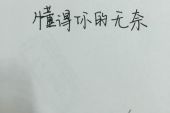 懂得你的无奈